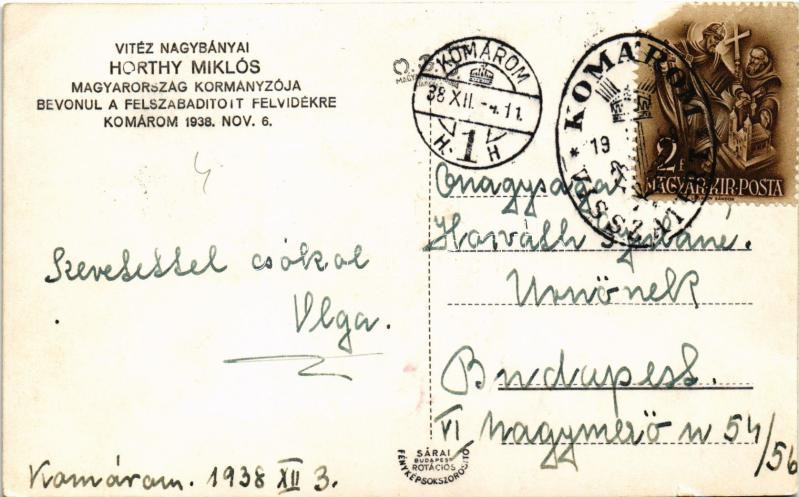 VITÉZ NAGYBÁNYAI
HORTHY MIKLÓS
MAGYARORSZÁG KORMANYZÓJA
BEVONUL A FELSZABADITOTT FELVIDÉKRE
KOMÁROM 1938. NOV. 6.
KOMÁROM
38 XII. -4. 11
1
H H
KOMÁROM
VISSZA
19
2 f
MAGYAR·KIR·POSTA
Szeretettel csókol
Olga.
Komárom. 1938 XII 3.
Őnagysága
Horváth
Urnőnek
Budapest.
VI Nagymező u 54/56
SÁRAI
BUDAPEST
ROTÁCIÓS
FÉNYKÉPSOKSZOROSITÓ